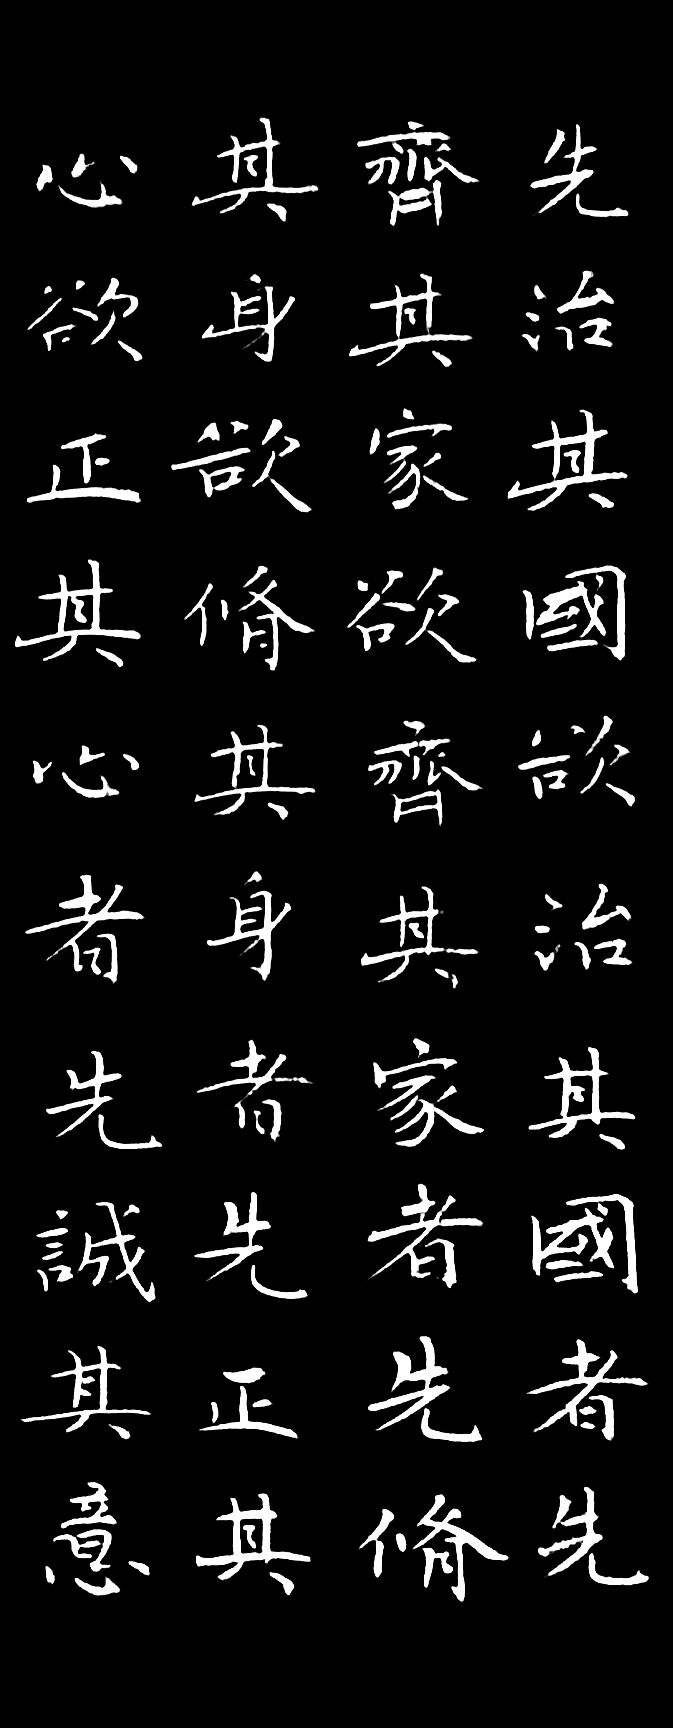 先治其國欲治其國者先
齊其家欲齊其家者先脩
其身欲脩其身者先正其
心欲正其心者先誠其意